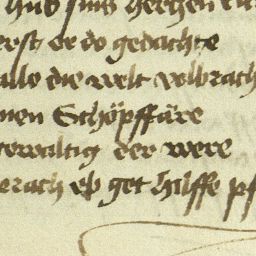 hub sins hertzen
erst er do gedachte
allo die welt volbrach
nen Schöpffäre
gewaltig der were
sprach eß get hilffe pf